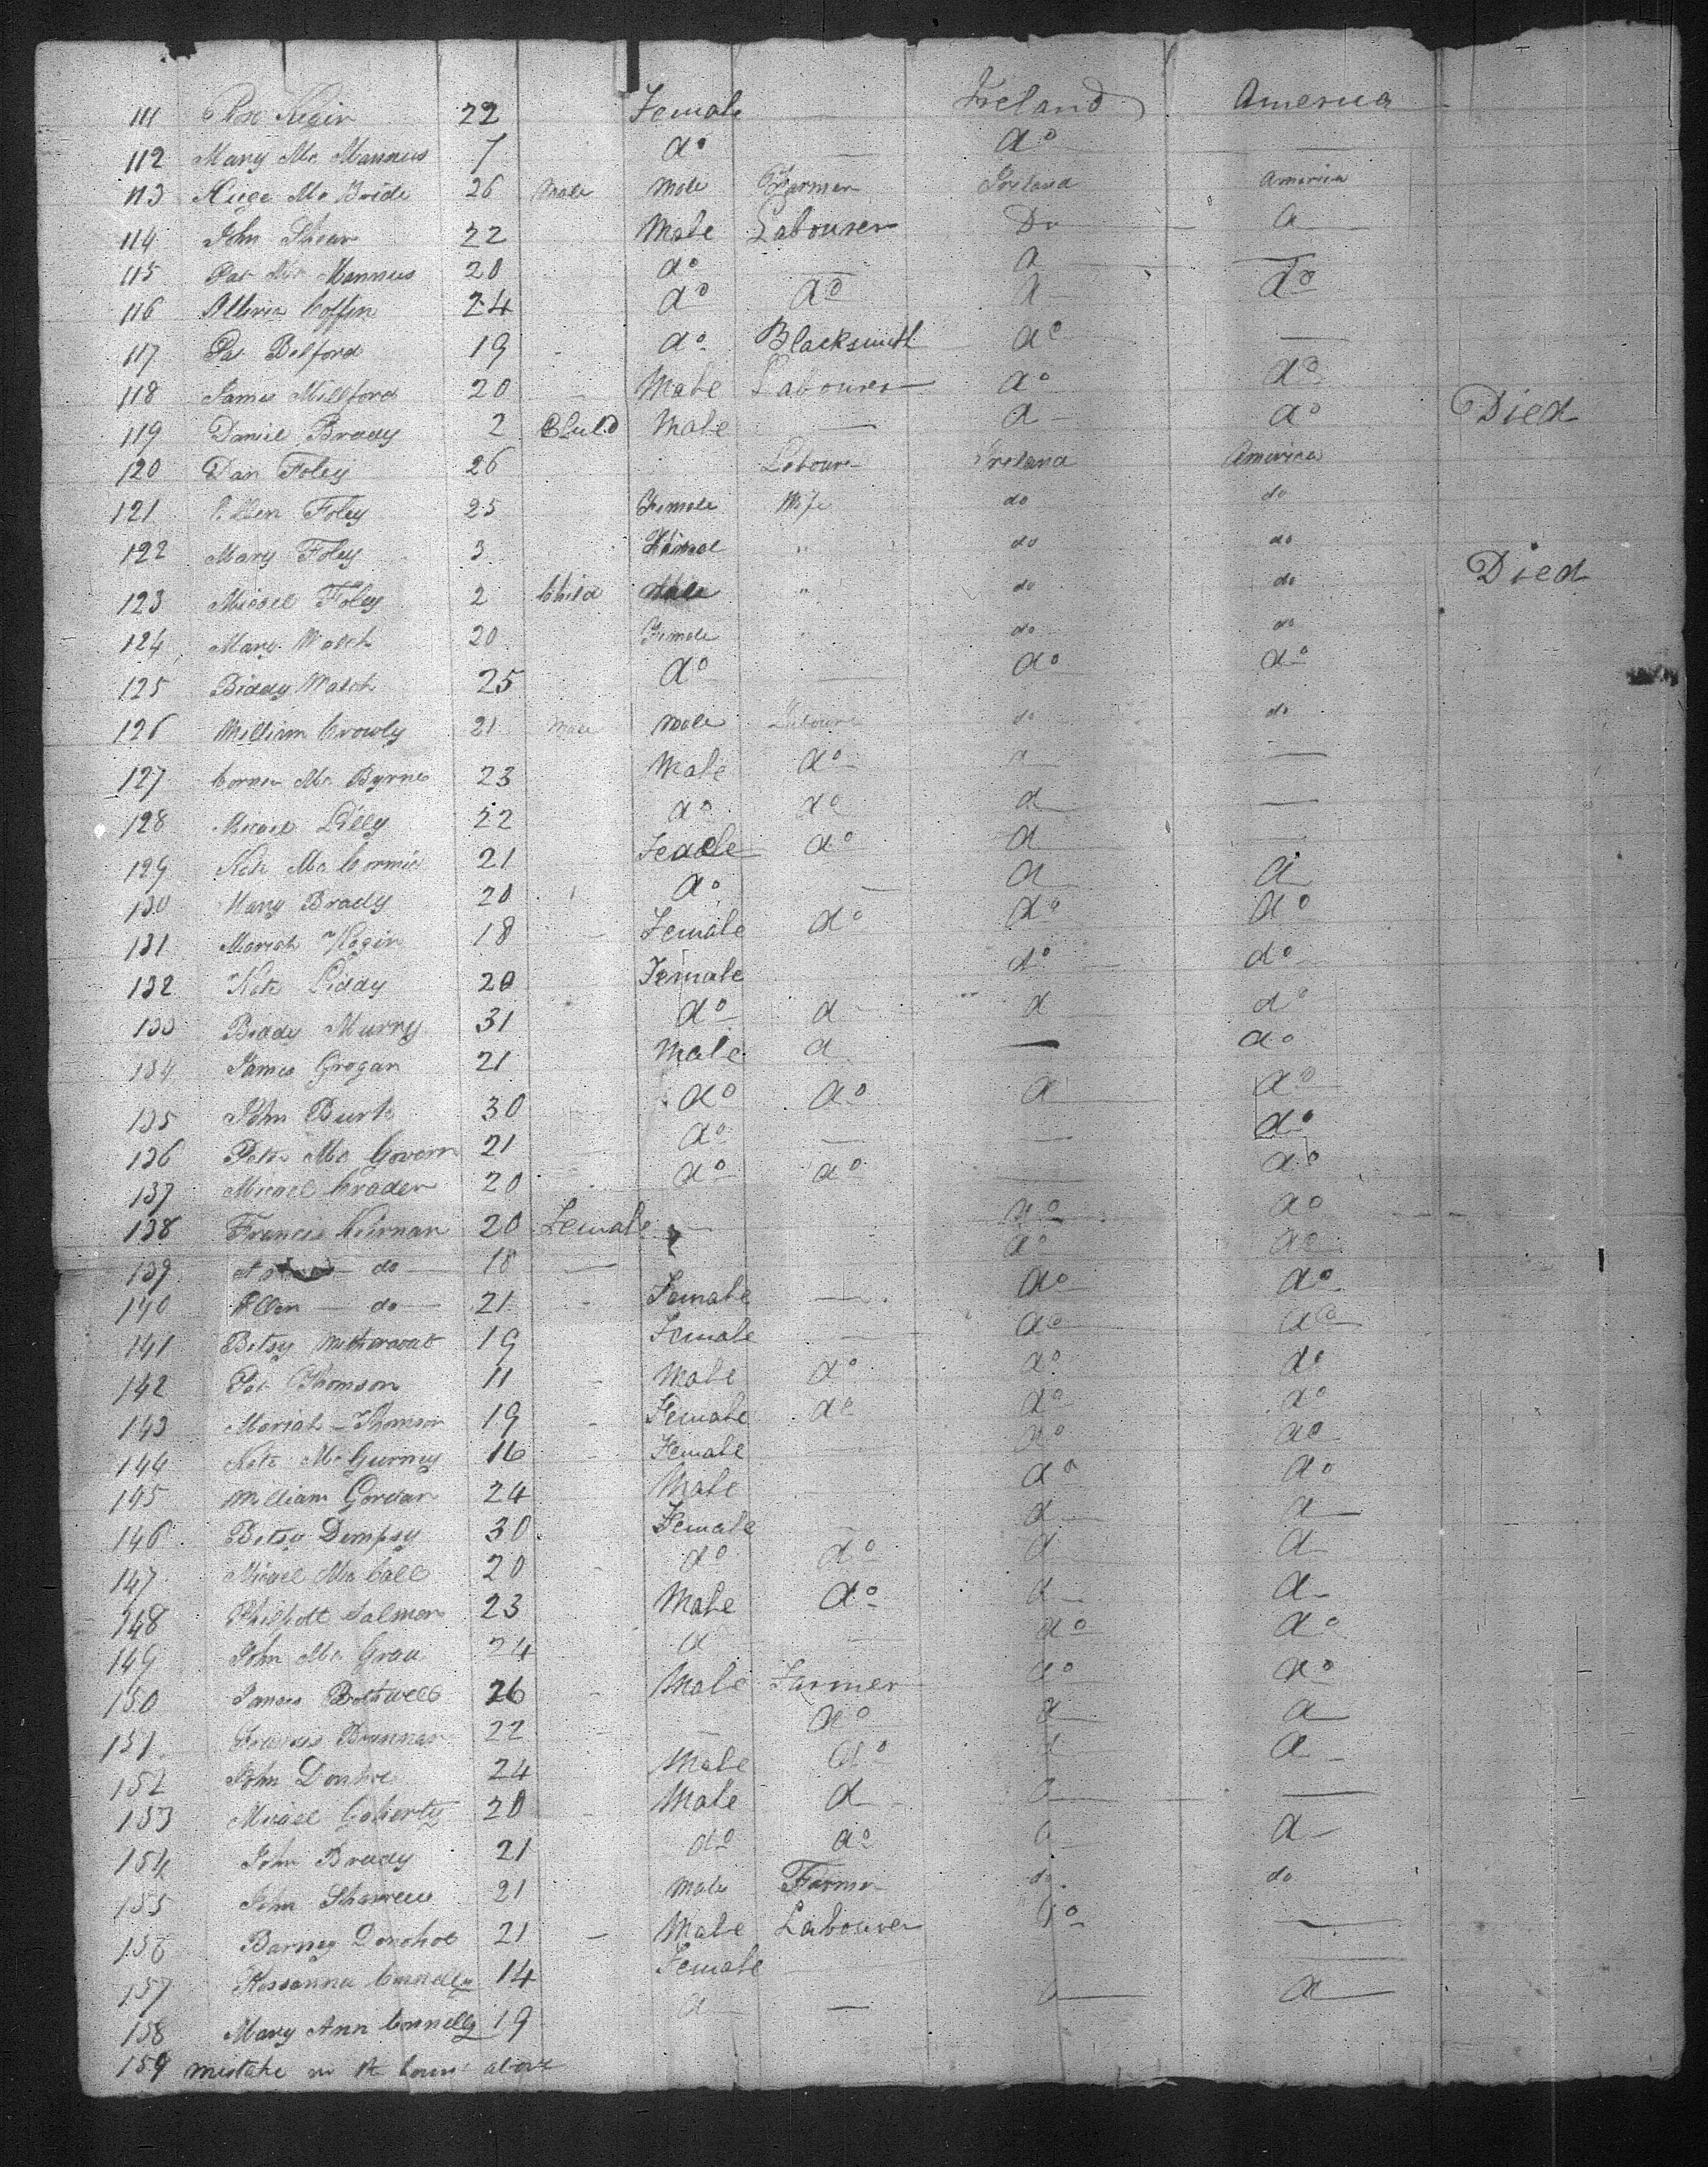 111 Ann Kegin 22 Female — Ireland America
112 Mary Mc Mannus 7 do — do —
113 Huge Mc Bride 26 Male Male Farmer Ireland America
114 John Shear 22 Male Labourer Do a
115 Pat Mc Mannus 20 do — a —
116 Coffin 24 do do a do
117 Pat Belford 19 do Blacksmith do —
118 James Millford 20 Male Labourer do do
119 Daniel Brady 2 Child Male — a do Died
120 Dan Foley 26 Laboure Ireland America
121 Ellen Foley 25 Female Wife do do
122 Mary Foley 3 " do do
123 Micael Foley 2 Child Male " do do Died
124 Mary Walch 20 Female do do
125 Biddy Walch 25 do — do do
126 William Crowly 21 Male Male Laboure do do
127 Mc Byrne 23 Male do a —
128 Micael Lilly 22 do do d —
129 Kate Mc Cormic 21 do d —
130 Mary Brady 20 do — d d
131 Mariah Kegin 18 Female do do do
132 Kate Liddy 20 Female do do
133 Biddy Murry 31 do d d do
134 James Grogan 21 Male d — do
135 John Burk 30 do do d do
136 Peter Mc Govern 21 do — — do
137 Micael Crader 20 do do — do
138 Francis Kiernan 20 Female — do do
139 do 18 — do do
140 Ellen — do — 21 Female — do do
141 Betsy 19 Female — do do
142 Pat Thomson 11 Male do do do
143 Mariah Thomson 19 Female do do do
144 Kate McGurney 16 Female — do do
145 William Gordan 24 Male do do
146 Betsy Dempsy 30 Female — d d
147 Micael Mc Call 20 do do d d
148 Salmon 23 Male do d d
149 John Mc Grau 24 d — do do
150 James Bothwell 26 Male Farmer do do
151 Francis Brannan 22 — do d d
152 John Donhoe 24 Male do d d
153 Micael Coherty 20 Male d d —
154 John Brady 21 do do d d
155 John 21 Male Farmer do do
156 Barney Donohoe 21 Male Labourer do —
157 Rossanna Connelly 14 Female —
158 Mary Ann Connelly 19 d — d d
159 mistake in the Count above